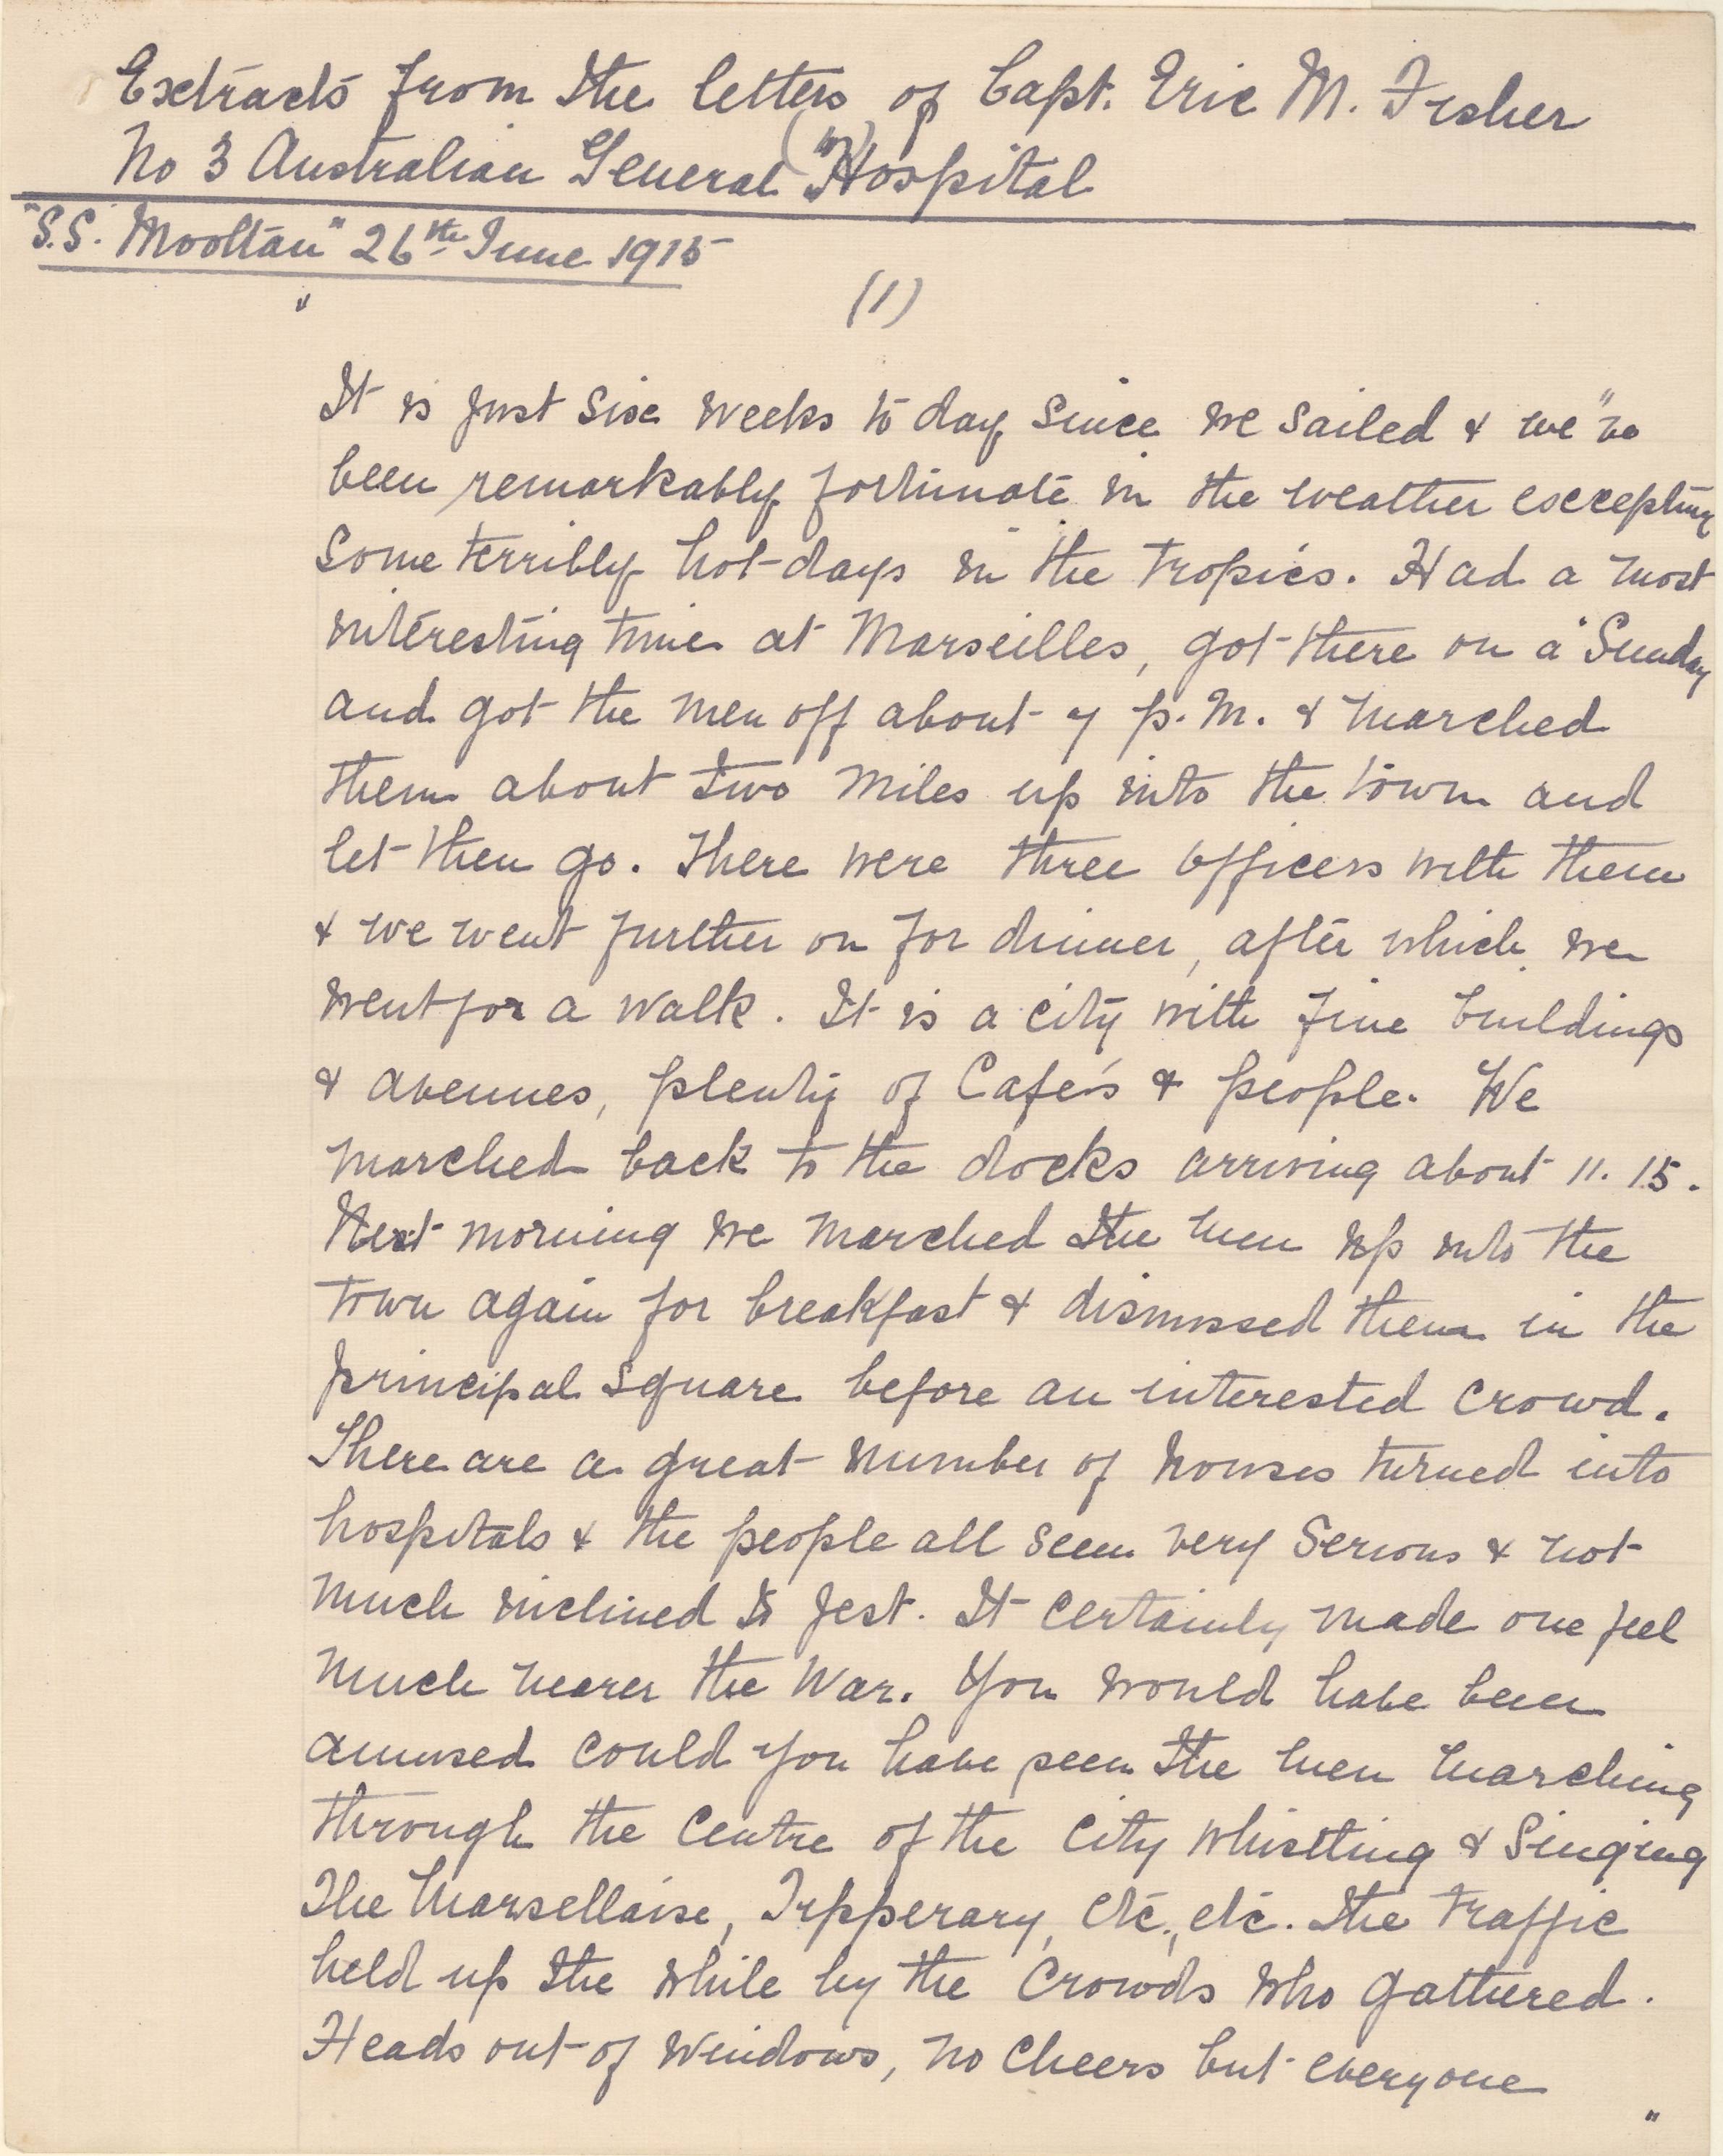 Extracts from the letters of Capt. Eric M. Fisher
No 3 Australian General (M) Hospital
"S.S. Mooltan" 26th June 1915
"
(1)
It is just six weeks to day since we sailed & we've
been remarkably fortunate in the weather excepting
some terribly hot days in the tropics. Had a most
interesting time at Marseilles, got there on a Sunday
and got the men off about 7 p.m. & marched
them about two miles up into the town and
let then go. There were three officers with them
& we went further on for dinner, after which we
went for a walk. It is a city with fine buildings
& avenues, plenty of Cafés & people. We
marched back to the docks arriving about 11.15.
Next morning we marched the men up into the
town again for breakfast & dismissed them in the
principal square before an interested crowd.
There are a great number of houses turned into
hospitals & the people all seem very serious & not
much inclined to jest. It certainly made one feel
much nearer the War. You would have been
amused could you have seen the men marching
through the centre of the city whistling & singing
The Marsellaise, Tipperary, etc., etc. The traffic
held up the while by the crowds who gathered.
Heads out of windows, no cheers but everyone
"